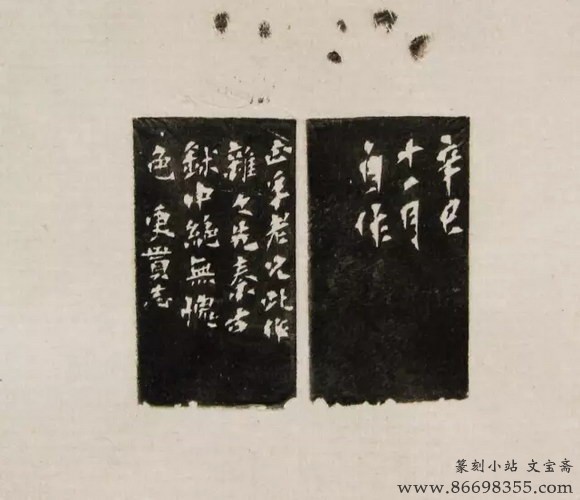 辛丑
十一月
自作
正宇老兄此作
雜之先秦古
鉥中絕無愧
色 志
篆刻小站 文宝斋
www.86698355.com